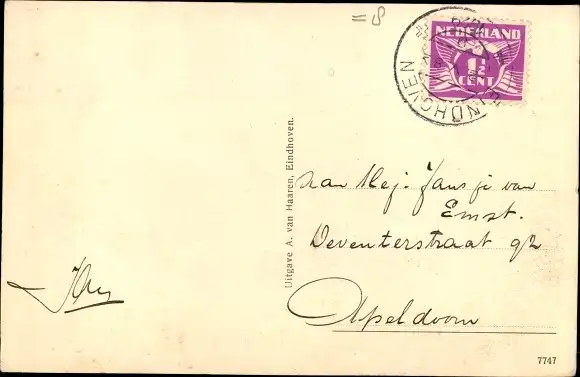 = 8
NEDERLAND
1½
CENT
EINDHOVEN
Uitgave A. van Haaren, Eindhoven.
Aan Mej. Jansje van
Emst.
Deventerstraat 92
Apeldoorn
7747